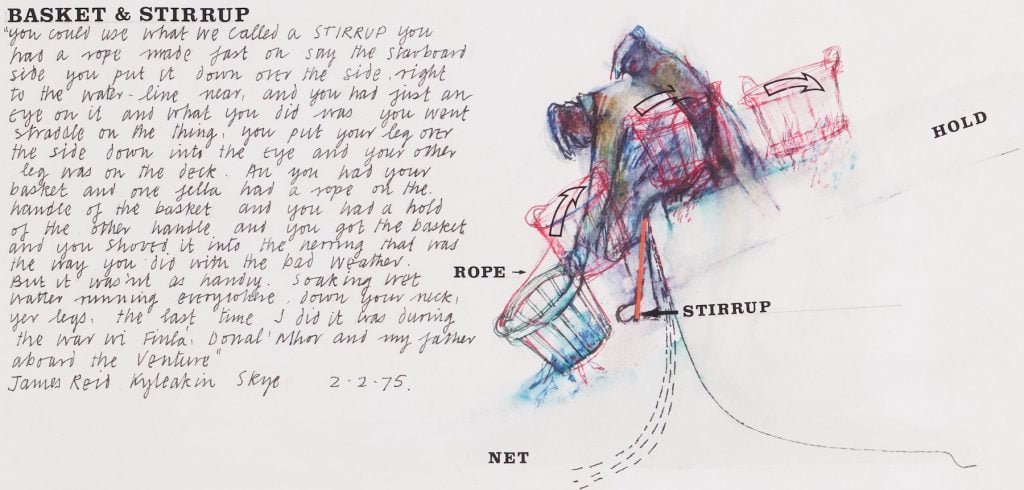 BASKET & STIRRUP
"you could use what we called a STIRRUP you
had a rope made fast on say the starboard
side you put it down over the side, right
to the water-line near, and you had just an
eye on it and what you did was you went
straddle on the thing, you put your leg over
the side down into the eye and your other
leg was on the deck. An you had your
basket and one fella had a rope on the
handle of the basket and you had a hold
of the other handle and you got the basket
and you shoved it into the herring that was
the way you did with the bad weather.
But it wasn't as handy. Soaking wet
watter running everywhere, down your neck,
yer legs, the last time I did it was during
the war wi Finla', Donal' Mhor and my father
aboard the Venture"
James Reid Kyleakin Skye 2.2.75.
HOLD
ROPE
STIRRUP
NET